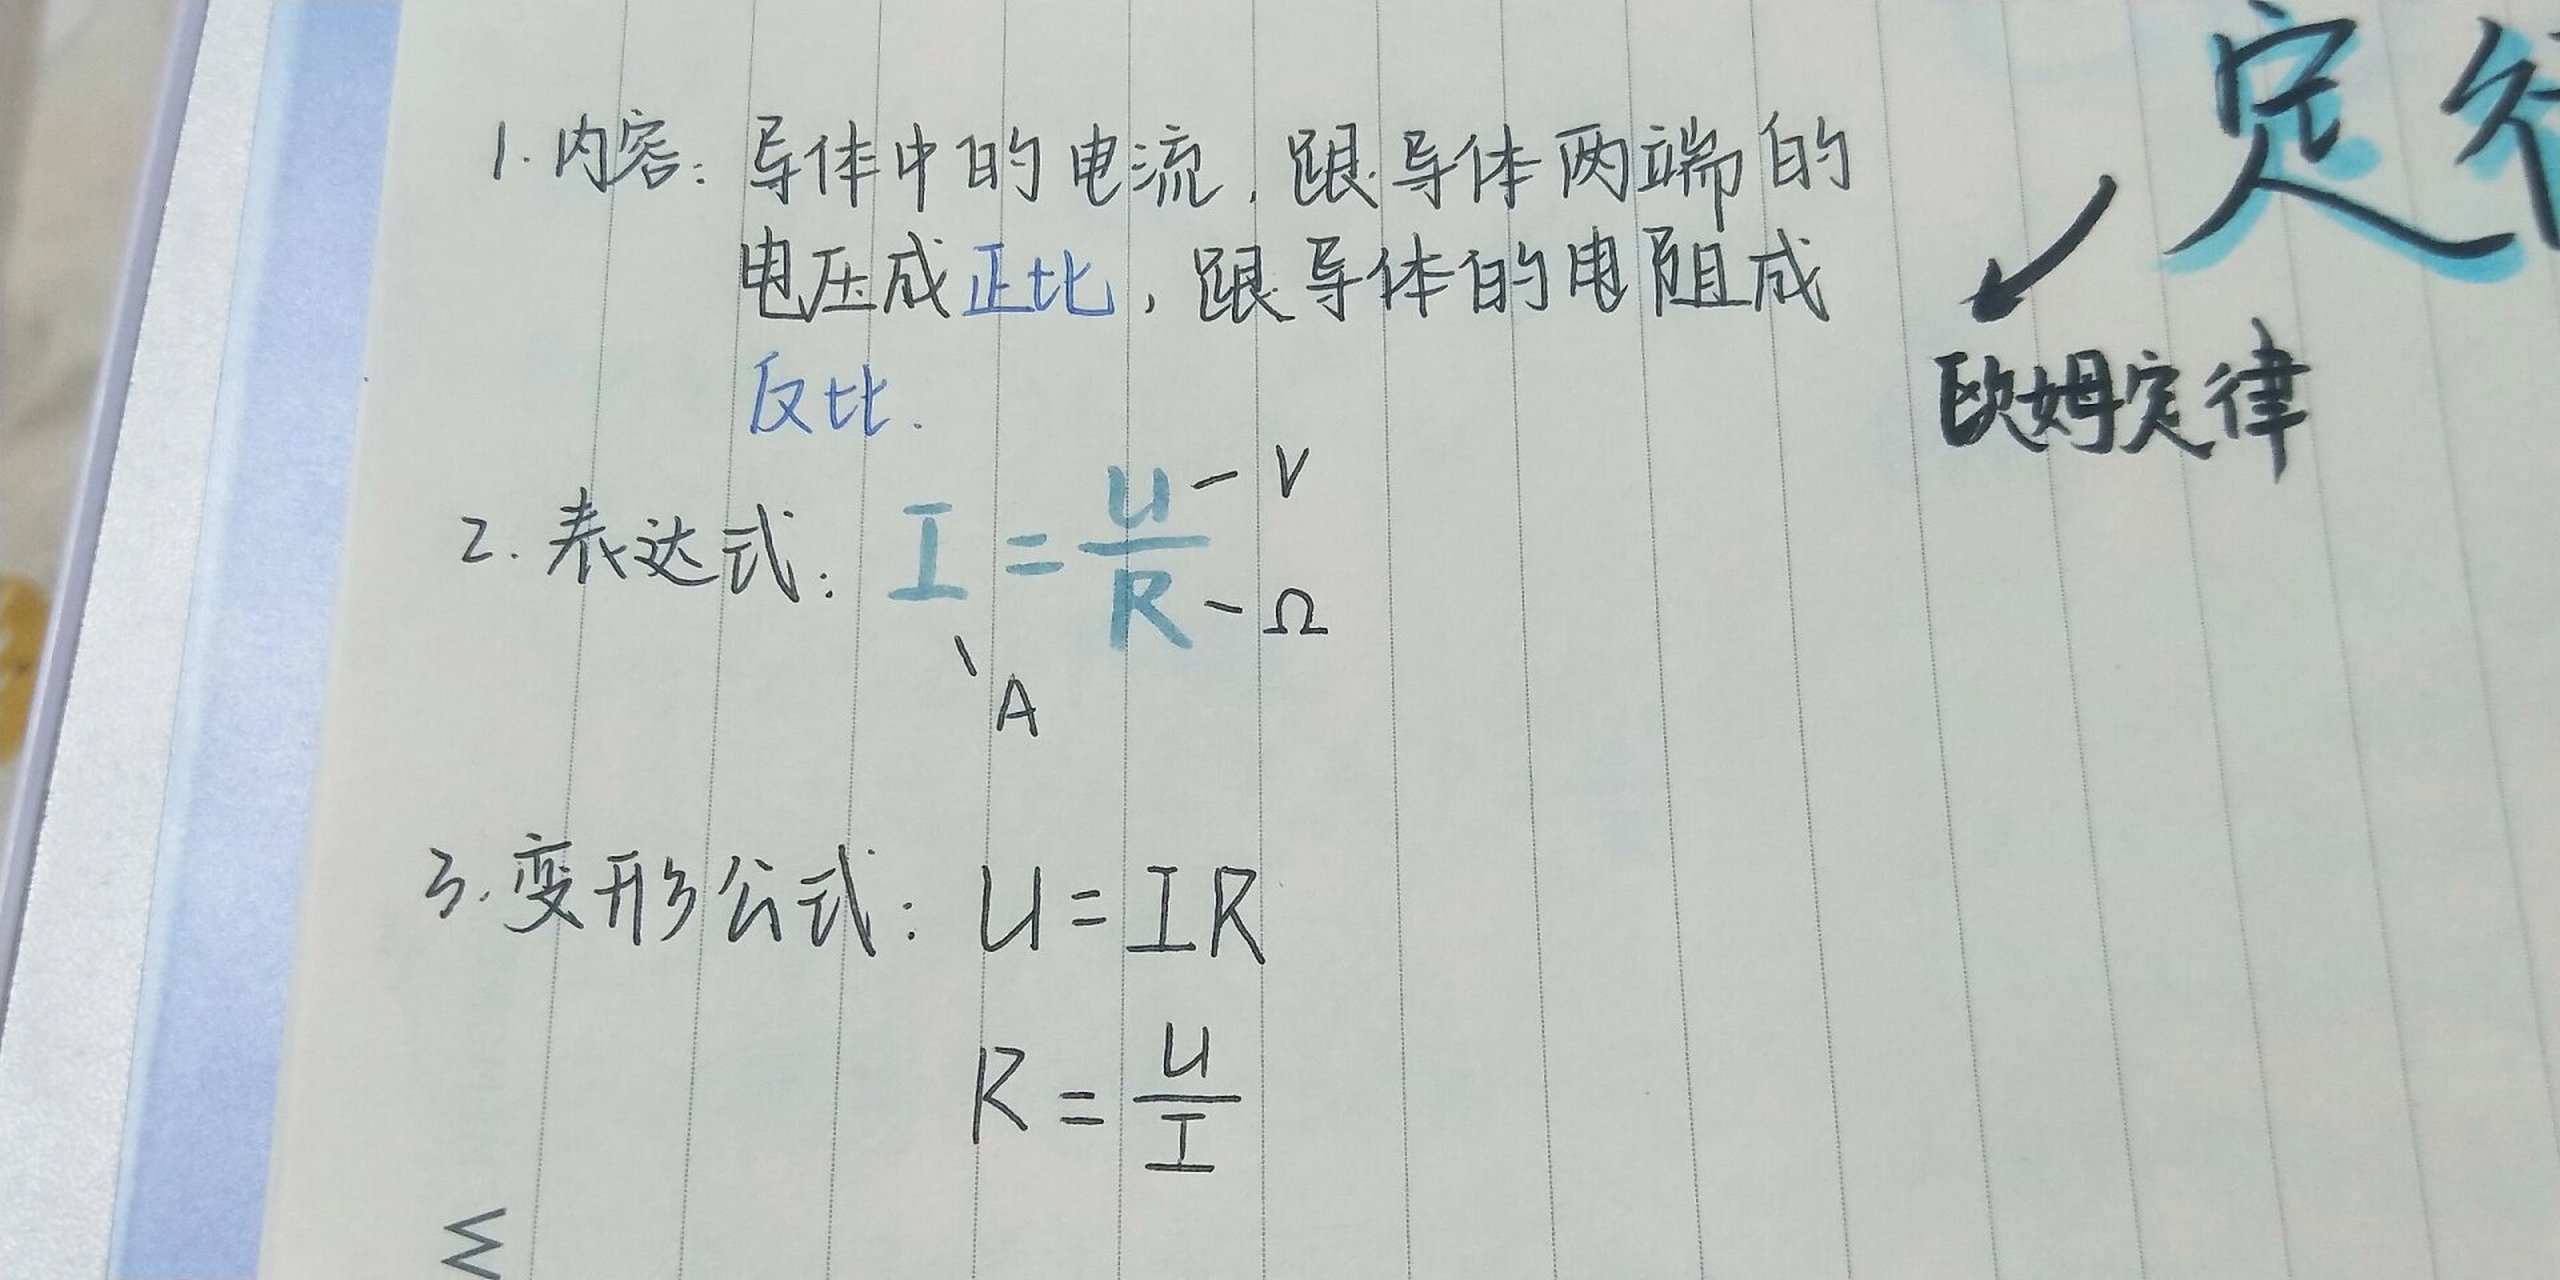 定律
欧姆定律
1. 内容: 导体中的电流, 跟导体两端的
电压成正比, 跟导体的电阻成
反比.
2. 表达式: I = U/R - V - Ω
A
3. 变形公式: U = IR
R = U/I